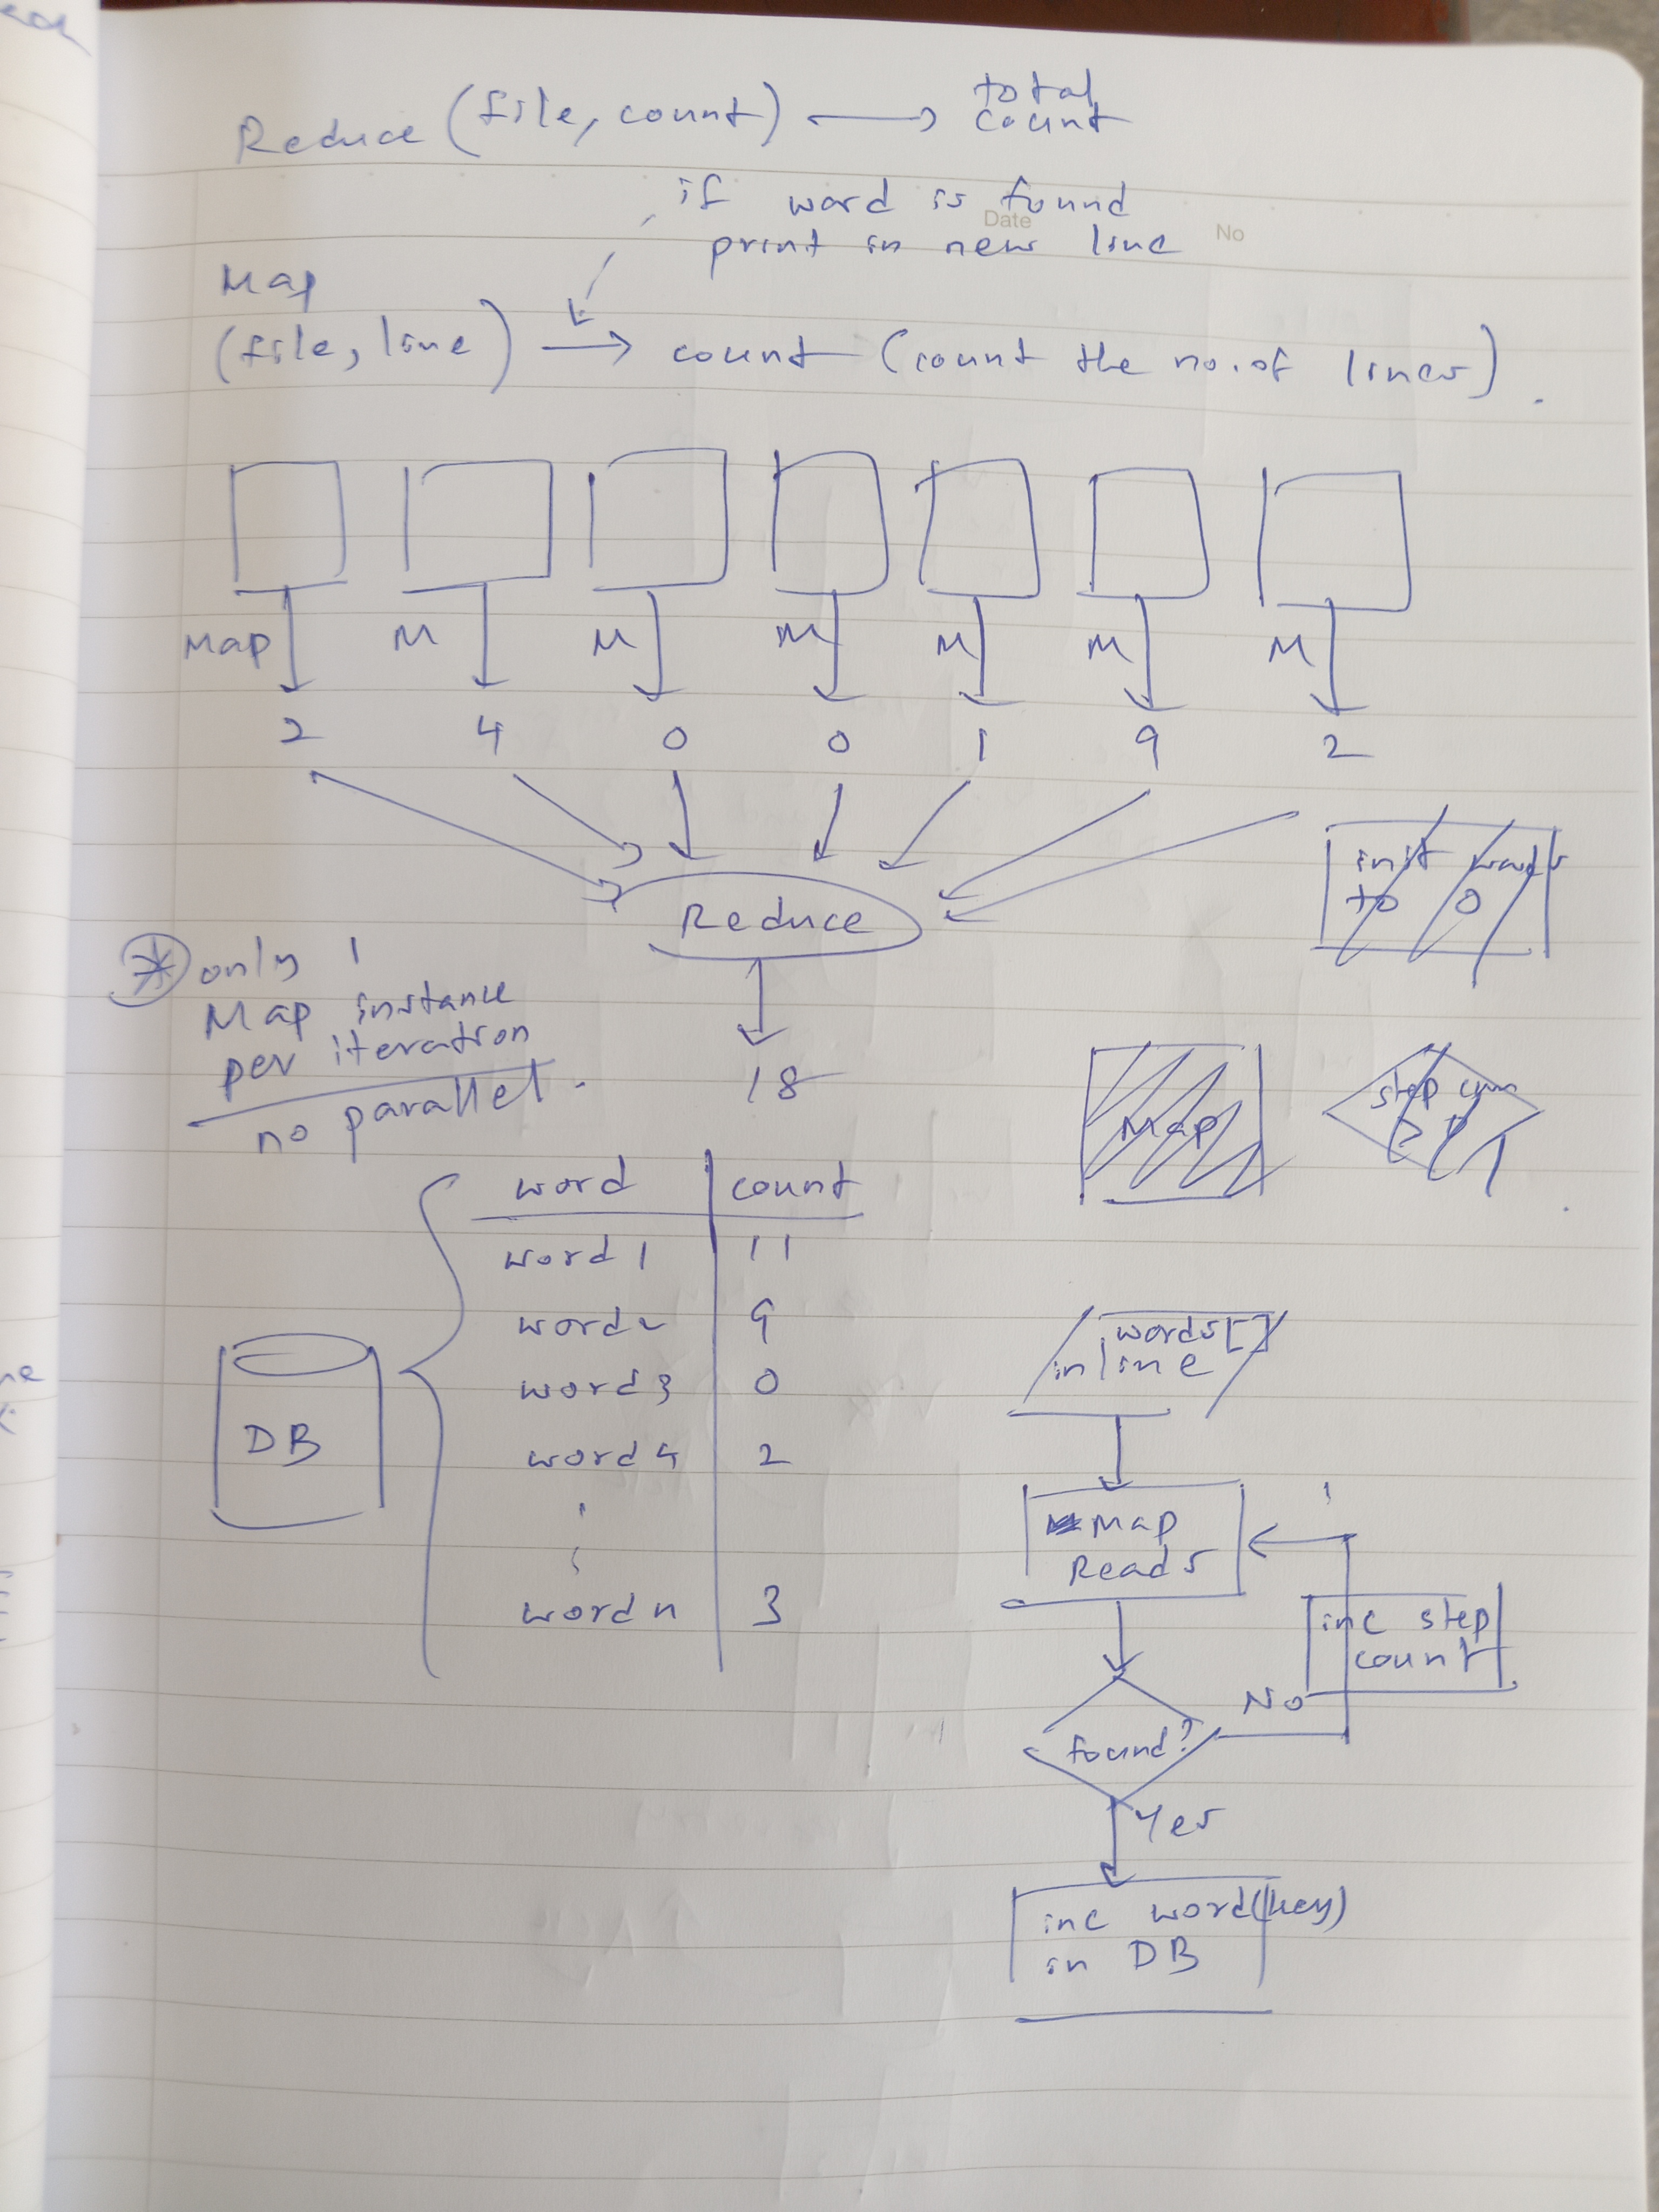 Reduce (file, count) → total
count
if word is found
Date
No
print in new line
Map
(file, line) → count (count the no. of lines).
Map M M M M M M
2 4 0 0 1 9 2
Reduce
18
init words
to 0
* only 1
Map instance
per iteration
no parallel.
Map
step
word | count
word1 | 11
word2 | 9
word3 | 0
word4 | 2
wordn | 3
DB
words[]
in line
Map
Reads
inc step
count
found?
No
Yes
inc word(key)
in DB